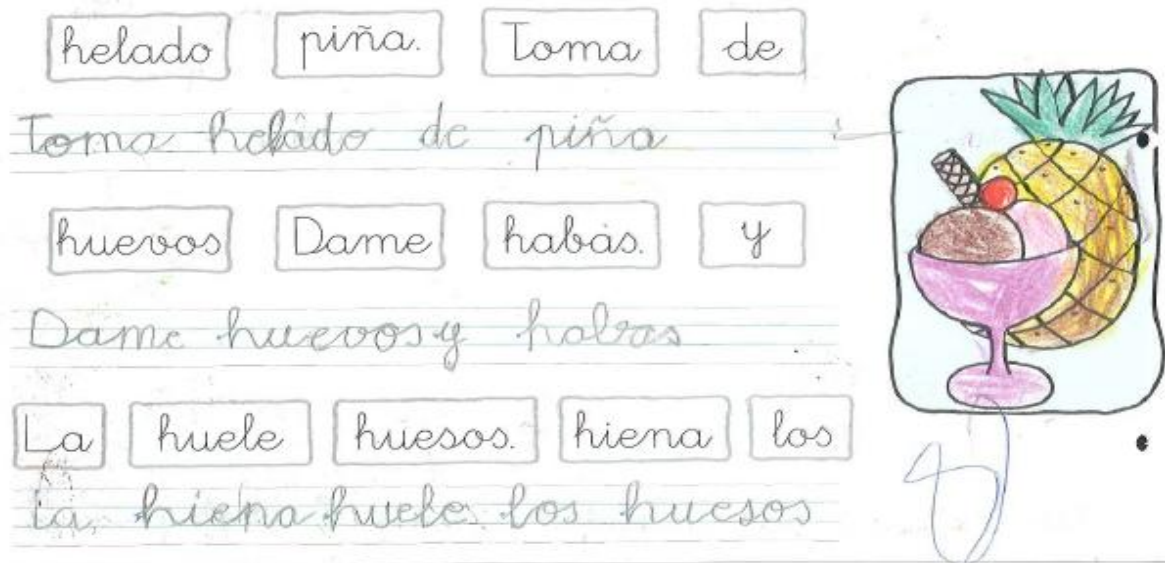 helado piña. Toma de
Toma helado de piña
huevos Dame habas. y
Dame huevos y habas
La huele huesos. hiena los
La hiena huele los huesos